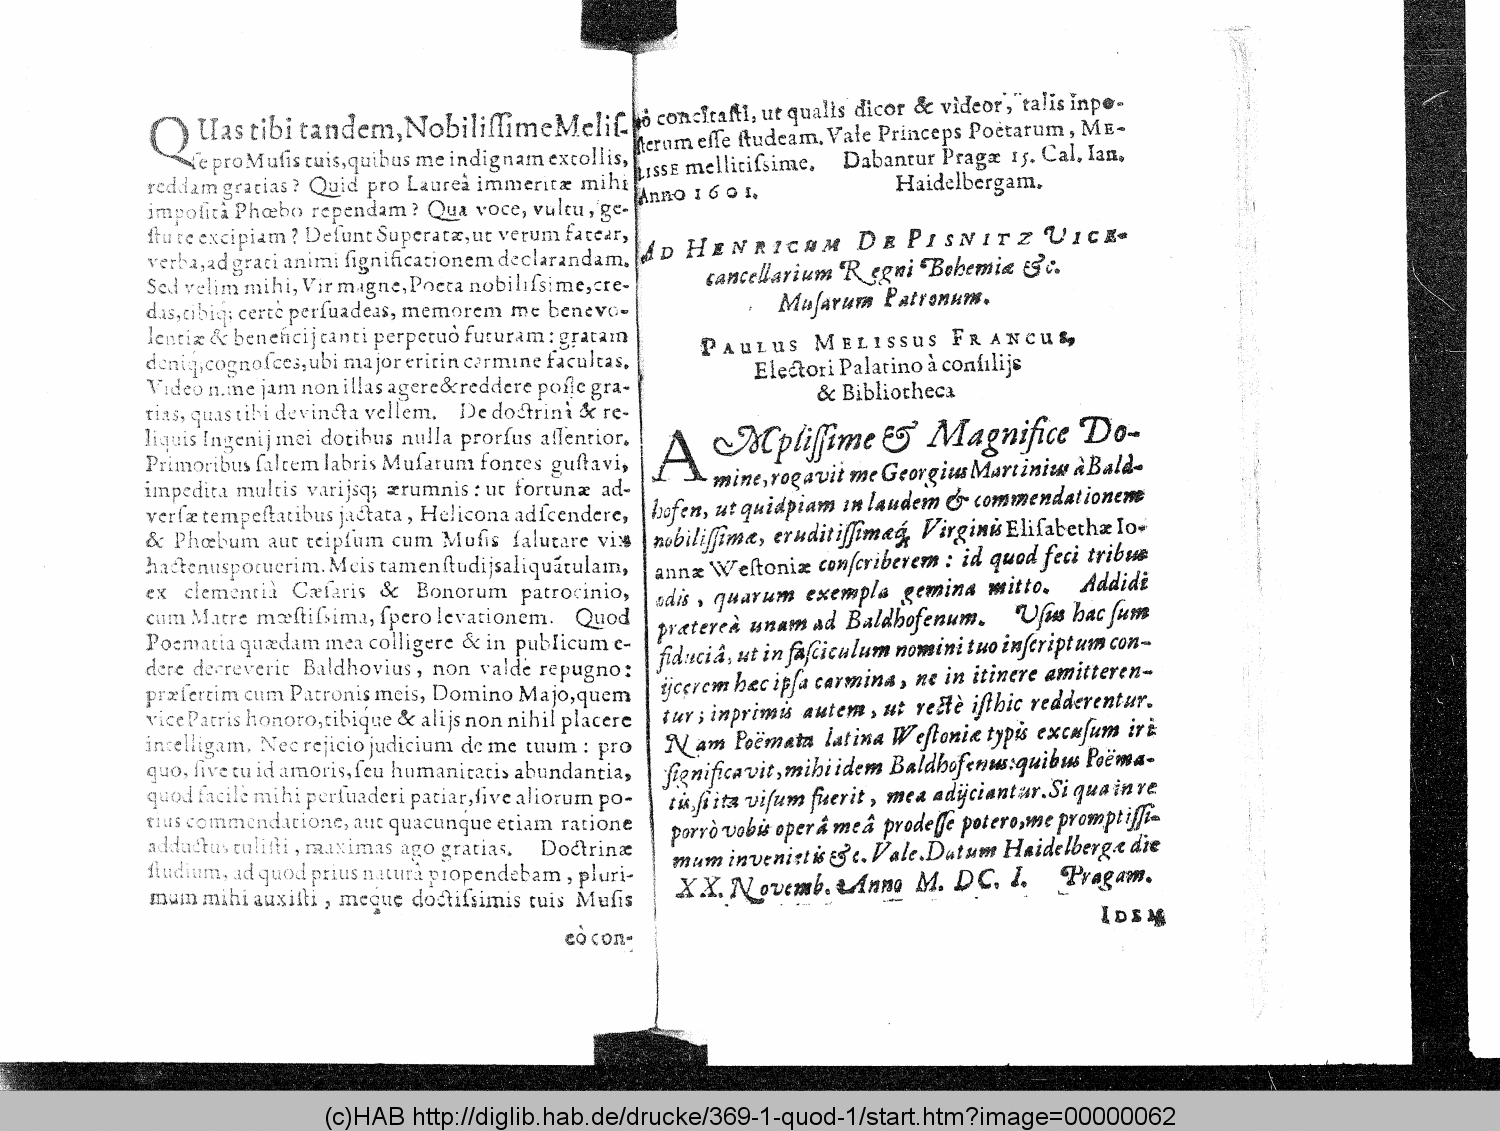 QUas tibi tandem, Nobilissime Melis-
se pro Musis tuis, quibus me indignam extollis,
reddam gratias? Quid pro Laureâ immeritæ mihi
impositâ Phœbo rependam? Qua voce, vultu, ge-
stu te excipiam? Desunt Superatæ, ut verum fatear,
verba, ad grati animi significationem declarandam.
Sed velim mihi, Vir magne, Poeta nobilissime, cre-
das, tibiq; certè persuadeas, memorem me benevo-
lentiæ & beneficij tanti perpetuò futuram: gratam
deniq; cognosces, ubi major erit in carmine facultas.
Video n. me jam non illas agere & reddere posse gra-
tias, quas tibi devincta vellem. De doctrinâ & re-
liquis Ingenij mei dotibus nulla prorsus assentior.
Primoribus saltem labris Musarum fontes gustavi,
impedita multis varijsq; ærumnis: ut fortunæ ad-
versæ tempestatibus jactata, Helicona adscendere,
& Phœbum aut teipsum cum Musis salutare vix
hactenus potuerim. Meis tamen studijs aliquãtulam,
ex clementiâ Cæsaris & Bonorum patrocinio,
cum Matre mœstissima, spero levationem. Quod
Poematia quædam mea colligere & in publicum e-
dere decreverit Baldhovius, non valdè repugno:
præsertim cum Patronis meis, Domino Majo, quem
vice Patris honoro, tibique & alijs non nihil placere
intelligam. Nec rejicio judicium de me tuum: pro
quo, sive tu id amoris, seu humanitatis abundantia,
quod facilè mihi persuaderi patiar, sive aliorum po-
tius commendatione, aut quacunque etiam ratione
adductus tulisti, maximas ago gratias. Doctrinæ
studium, ad quod prius naturâ propendebam, pluri-
mum mihi auxisti, meque doctissimis tuis Musis
eò con-
eò concitasti, ut qualis dicor & videor, talis inpo-
sterum esse studeam. Vale Princeps Poëtarum, ME-
LISSE mellitissime. Dabantur Pragæ 15. Cal. Ian.
Anno 1601. Haidelbergam.
AD HENRICUM DE PISNITZ VICE-
cancellarium Regni Bohemiæ &c.
Musarum Patronum.
PAULUS MELISSUS FRANCUS,
Electori Palatino à consilijs
& Bibliotheca
AMplissime & Magnifice Do-
mine, rogavit me Georgius Martinius à Bald-
hofen, ut quidpiam in laudem & commendationem
nobilissimæ, eruditissimæq́; Virginis Elisabethæ Io-
annæ Westoniæ conscriberem: id quod feci tribus
odis, quarum exempla gemina mitto. Addidi
prætereà unam ad Baldhofenum. Usus hac sum
fiduciâ, ut in fasciculum nomini tuo inscriptum con-
ijcerem hæc ipsa carmina, ne in itinere amitteren-
tur; inprimis autem, ut rectè isthic redderentur.
Nam Poëmata latina Westoniæ typis excusum iri
significavit, mihi idem Baldhofenus: quibus Poëma-
tis, si ita visum fuerit, mea adijciantur. Si qua in re
porrò vobis operâ meâ prodesse potero, me promptissi-
mum invenietis &c. Vale. Datum Haidelbergæ die
XX. Novemb. Anno M. DC. I. Pragam.
IDEM
(c)HAB http://diglib.hab.de/drucke/369-1-quod-1/start.htm?image=00000062